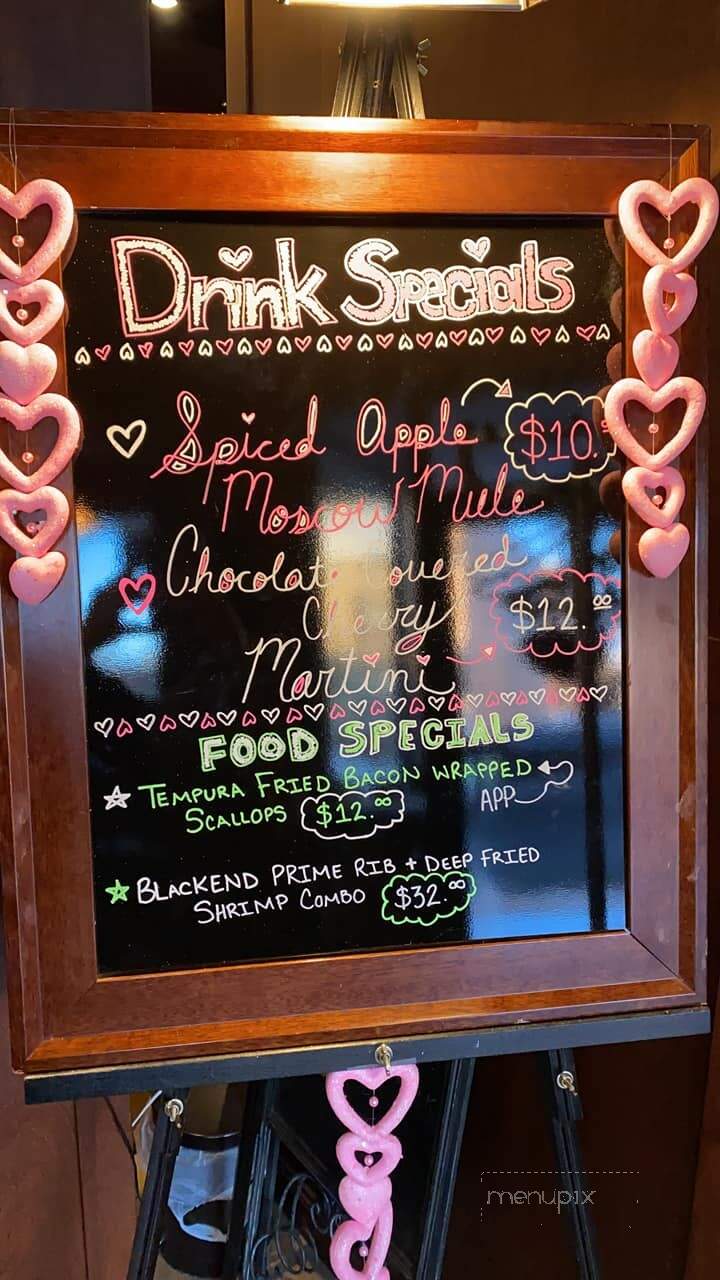 Drink Specials
Spiced Apple $10.
Moscow Muele
Covered
Cherry $12.00
Martini
FOOD SPECIALS
TEMPURA FRIED BACON WRAPPED
SCALLOPS $12.00 APP
BLACKEND PRIME RIB + DEEP FRIED
SHRIMP COMBO $32.00
menupix